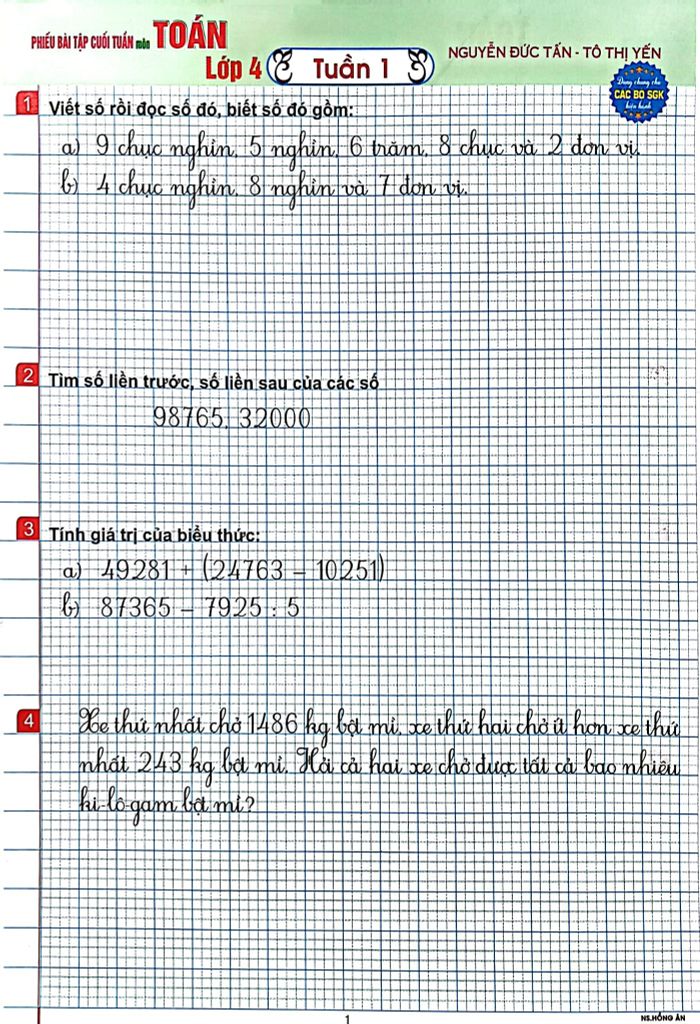 PHIẾU BÀI TẬP CUỐI TUẦN môn TOÁN
Lớp 4
Tuần 1
NGUYỄN ĐỨC TẤN - TÔ THỊ YẾN
Dùng chung cho
CÁC BỘ SGK
hiện hành
1 Viết số rồi đọc số đó, biết số đó gồm:
a) 9 chục nghìn, 5 nghìn, 6 trăm, 8 chục và 2 đơn vị.
b) 4 chục nghìn, 8 nghìn và 7 đơn vị.
2 Tìm số liền trước, số liền sau của các số
98765, 32000
3 Tính giá trị của biểu thức:
a) 49281 + (24763 – 10251)
b) 87365 – 7925 : 5
4 Xe thứ nhất chở 1486 kg bột mì, xe thứ hai chở ít hơn xe thứ
nhất 243 kg bột mì. Hỏi cả hai xe chở được tất cả bao nhiêu
ki-lô-gam bột mì?
1
NS.HỒNG ÂN